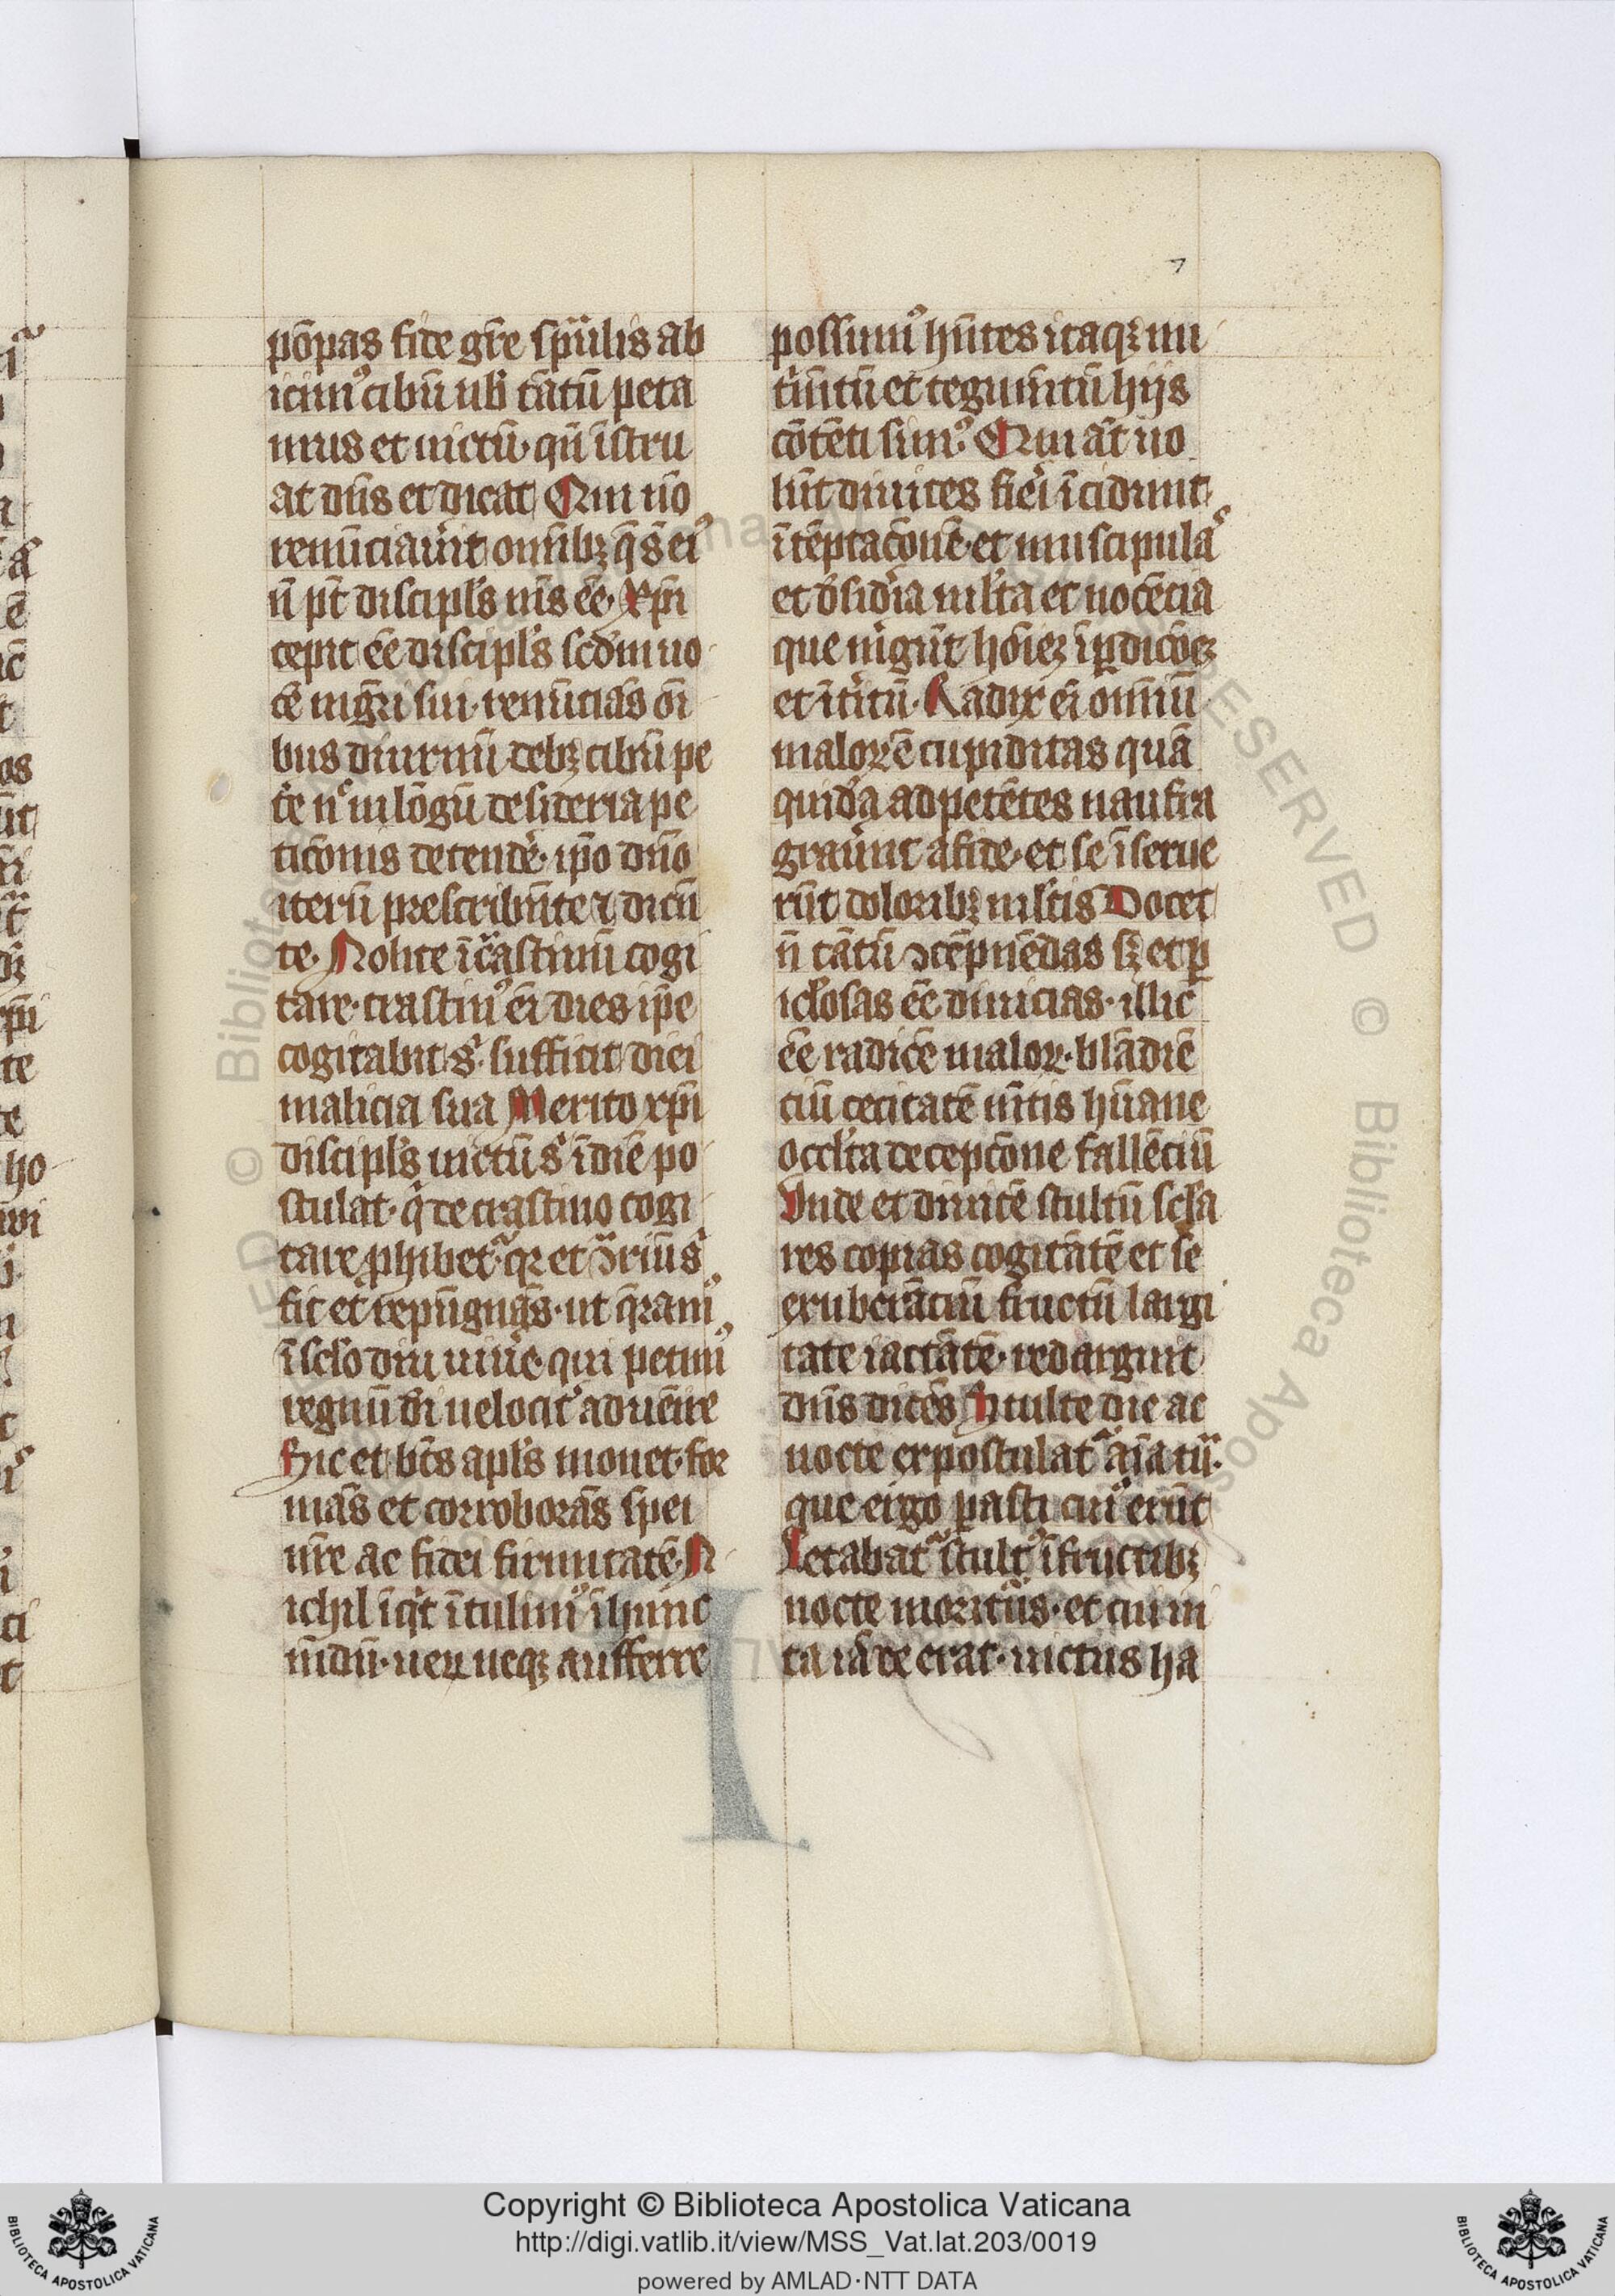 7
po̅pas fide gr̅e sp̅ulis ab
icim᷒ cibu̅ ub̅ ta̅tu̅ peta
mus et uictu̅· qu̅ i̅stru
at dn̅s et dicat Qui no̅
renu̅ciau̅it om̅ibꝫ q̅ s̅ ei᷒
n̅ pt̅ discipl̅s m̅s ee̅· xp̅i
cepit ee̅ discipl̅s scd̅m uo
ce̅ mg̅ri sui· renu̅cia̅s o̅i
bus diurnu̅ debꝫ cibu̅ pe
te̅ n᷒ in lo̅gu̅ desideria pe
tico̅nis detende̅· ip̅o dn̅o
iteru̅ prescribe̅te ⁊ dice̅
te· Nolite i̅ cᷓastinu̅ cogi
tare· crastin᷒ ei̅ dies ip̅e
cogitabit s᷒· sufficit diei
malicia sua Merito xp̅i
discipl̅s uictu̅ s᷒ i̅ die̅ po
stulat· q̇ de crastino cogi
tare ꝓhibetᷓ· qꝛ et ꝯᷓriu̅ s᷒
fit et repu̅gna̅s· ut q̅ram᷒
i̅ sc̅lo diu uiue̅· qui petim᷒
regnu̅ di̅ uelocit᷒ adue̅ire
Hic et bt̅s apl̅s monet· for
ma̅s et corrobora̅s spei
nr̅e ac fidei firmitate̅· N
ichil i̅qt̅ i̅tulim᷒ i̅ hunc
mu̅du̅· ueꝝ neqꝫ aufferre
possum᷒ hn̅tes itaqꝫ nu
t̅im̅tu̅ et tegum̅tu̅ hijs
co̅te̅ti sim᷒· Qui at̅ uo
lu̅t diuites fie̅i i̅cidunt
i̅ te̅ptaco̅ne̅· et muscipula᷒
et d̅sid̅ia ml̅ta et noce̅cia
que m̅gu̅t ho̅ieꝫ i̅ ꝑdico̅eꝫ
et i̅t̅itu̅· Radix ei̅ om̅iu̅
maloꝝ e̅ cupiditas qua̅
quida̅ adpete̅tes naufra
grau̅unt a fide· et se i̅serue
ru̅t doloribꝫ ml̅tis Docet
n̅ ta̅tu̅ ꝯte̅pne̅das sꝫ et ꝑ
icl̅osas ee̅ diuicias· illic
ee̅ radice̅ maloꝝ· bla̅die̅
ciu̅ cecitate̅ m̅tis hu̅ane
occl̅ta decepco̅ne falle̅ciu̅
Vnde et diuite̅ stultu̅ sc̅la
res copias cogita̅te̅ et se
exubera̅ciu̅ fructu̅ largi
tate iacta̅te̅· redarguit
dn̅s dice̅s Stulte die ac
nocte expostulatᷓ ai̅a tuᷓ·
que ergo ꝑasti cui᷒ eru̅t
Letabatᷓ stult᷒ i̅ fructibꝫ
nocte moritu᷒s· et cui ui
ta ia̅ de erat· uictus ha
Copyright © Biblioteca Apostolica Vaticana
http://digi.vatlib.it/view/MSS_Vat.lat.203/0019
powered by AMLAD·NTT DATA
BIBLIOTECA APOSTOLICA VATICANA
BIBLIOTECA APOSTOLICA VATICANA